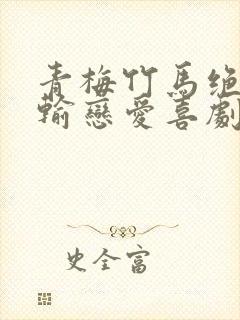 青梅竹馬绝
輸戀愛喜劇
史全富